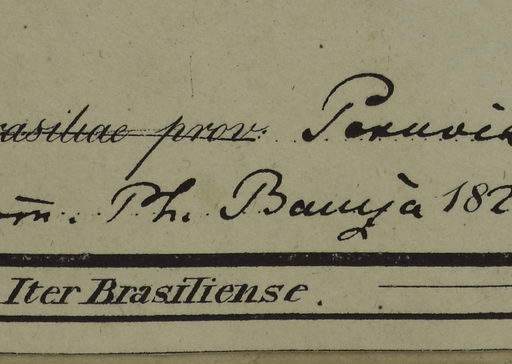 rasiliae prov. Peruvia
m̄. Ph. Bauzà 182
Iter Brasiliense.